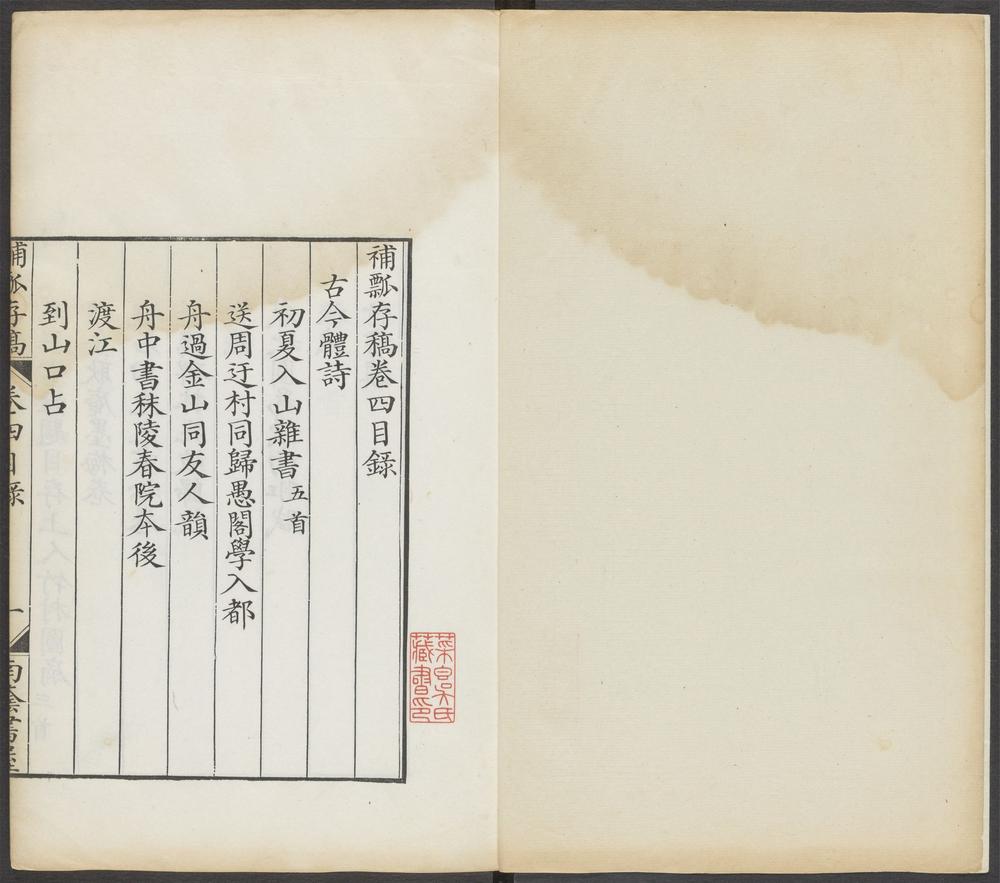 補瓢存稿卷四目錄
古今體詩
初夏入山雜書五首
送周迂村同歸愚閣學入都
舟過金山同友人韻
舟中書秣陵春院本後
渡江
到山口占
補瓢存稿
卷四目錄
一
藏書印